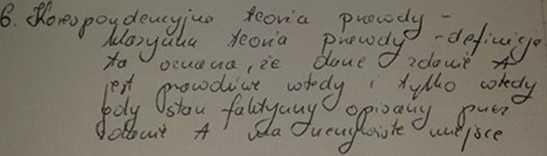 6. Korespondencyjna teoria prawdy -
klasyczna teoria prawdy - definicja
ta oznacza, że dane zdanie A
jest prawdziwe wtedy i tylko wtedy
gdy stan faktyczny opisany przez
zdanie A ma rzeczywiste miejsce